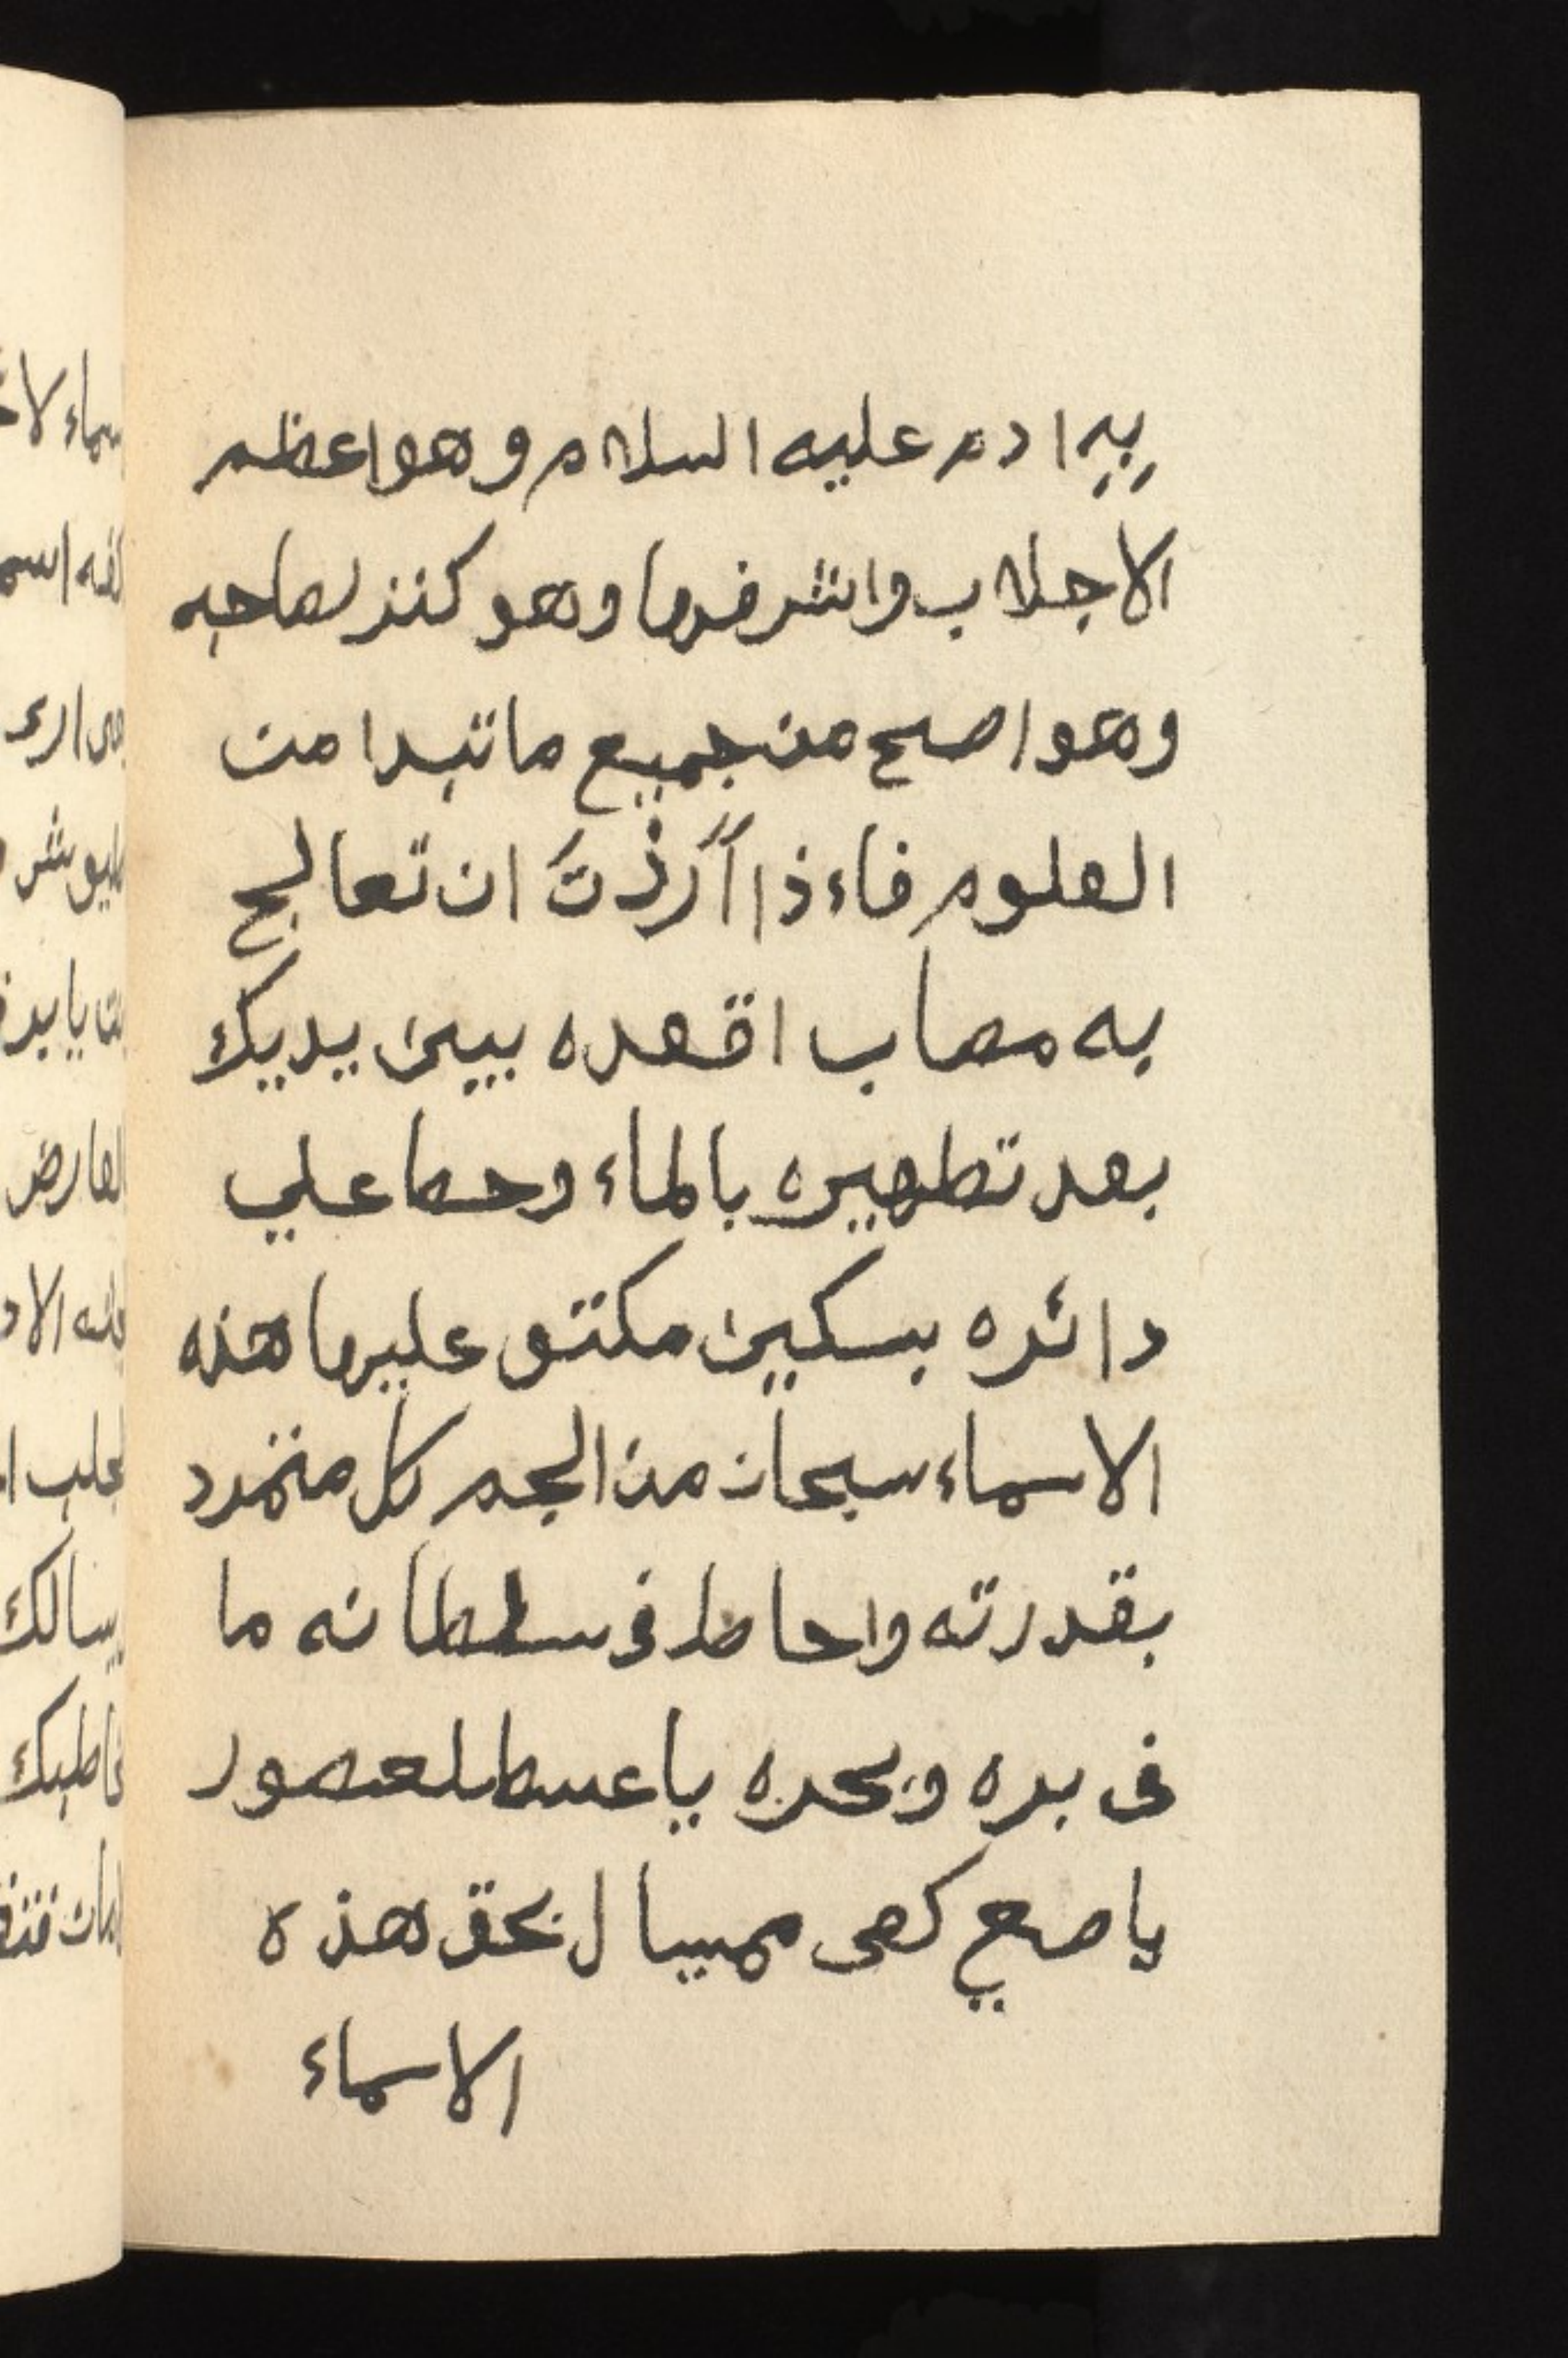 بِهِ ادم عليه السلام وهو اعظم
الاجلاب واشرفها وهو كنز لصاحبه
وهو اصح من جميع ما تبدا من
العلوم فاءذا أَرَدْتَ ان تعالج
به مصاب اقعده بيين يديك
بعد تطهيره بالماء وحط علي
دائره بسكين مكتو عليها هذه
الاسماء سبحان من الجم كل متمرد
بقدرته واحاط فى سلطانه ما
فى بره وبحره يا
يا كهى بحق هذه
الاسماء